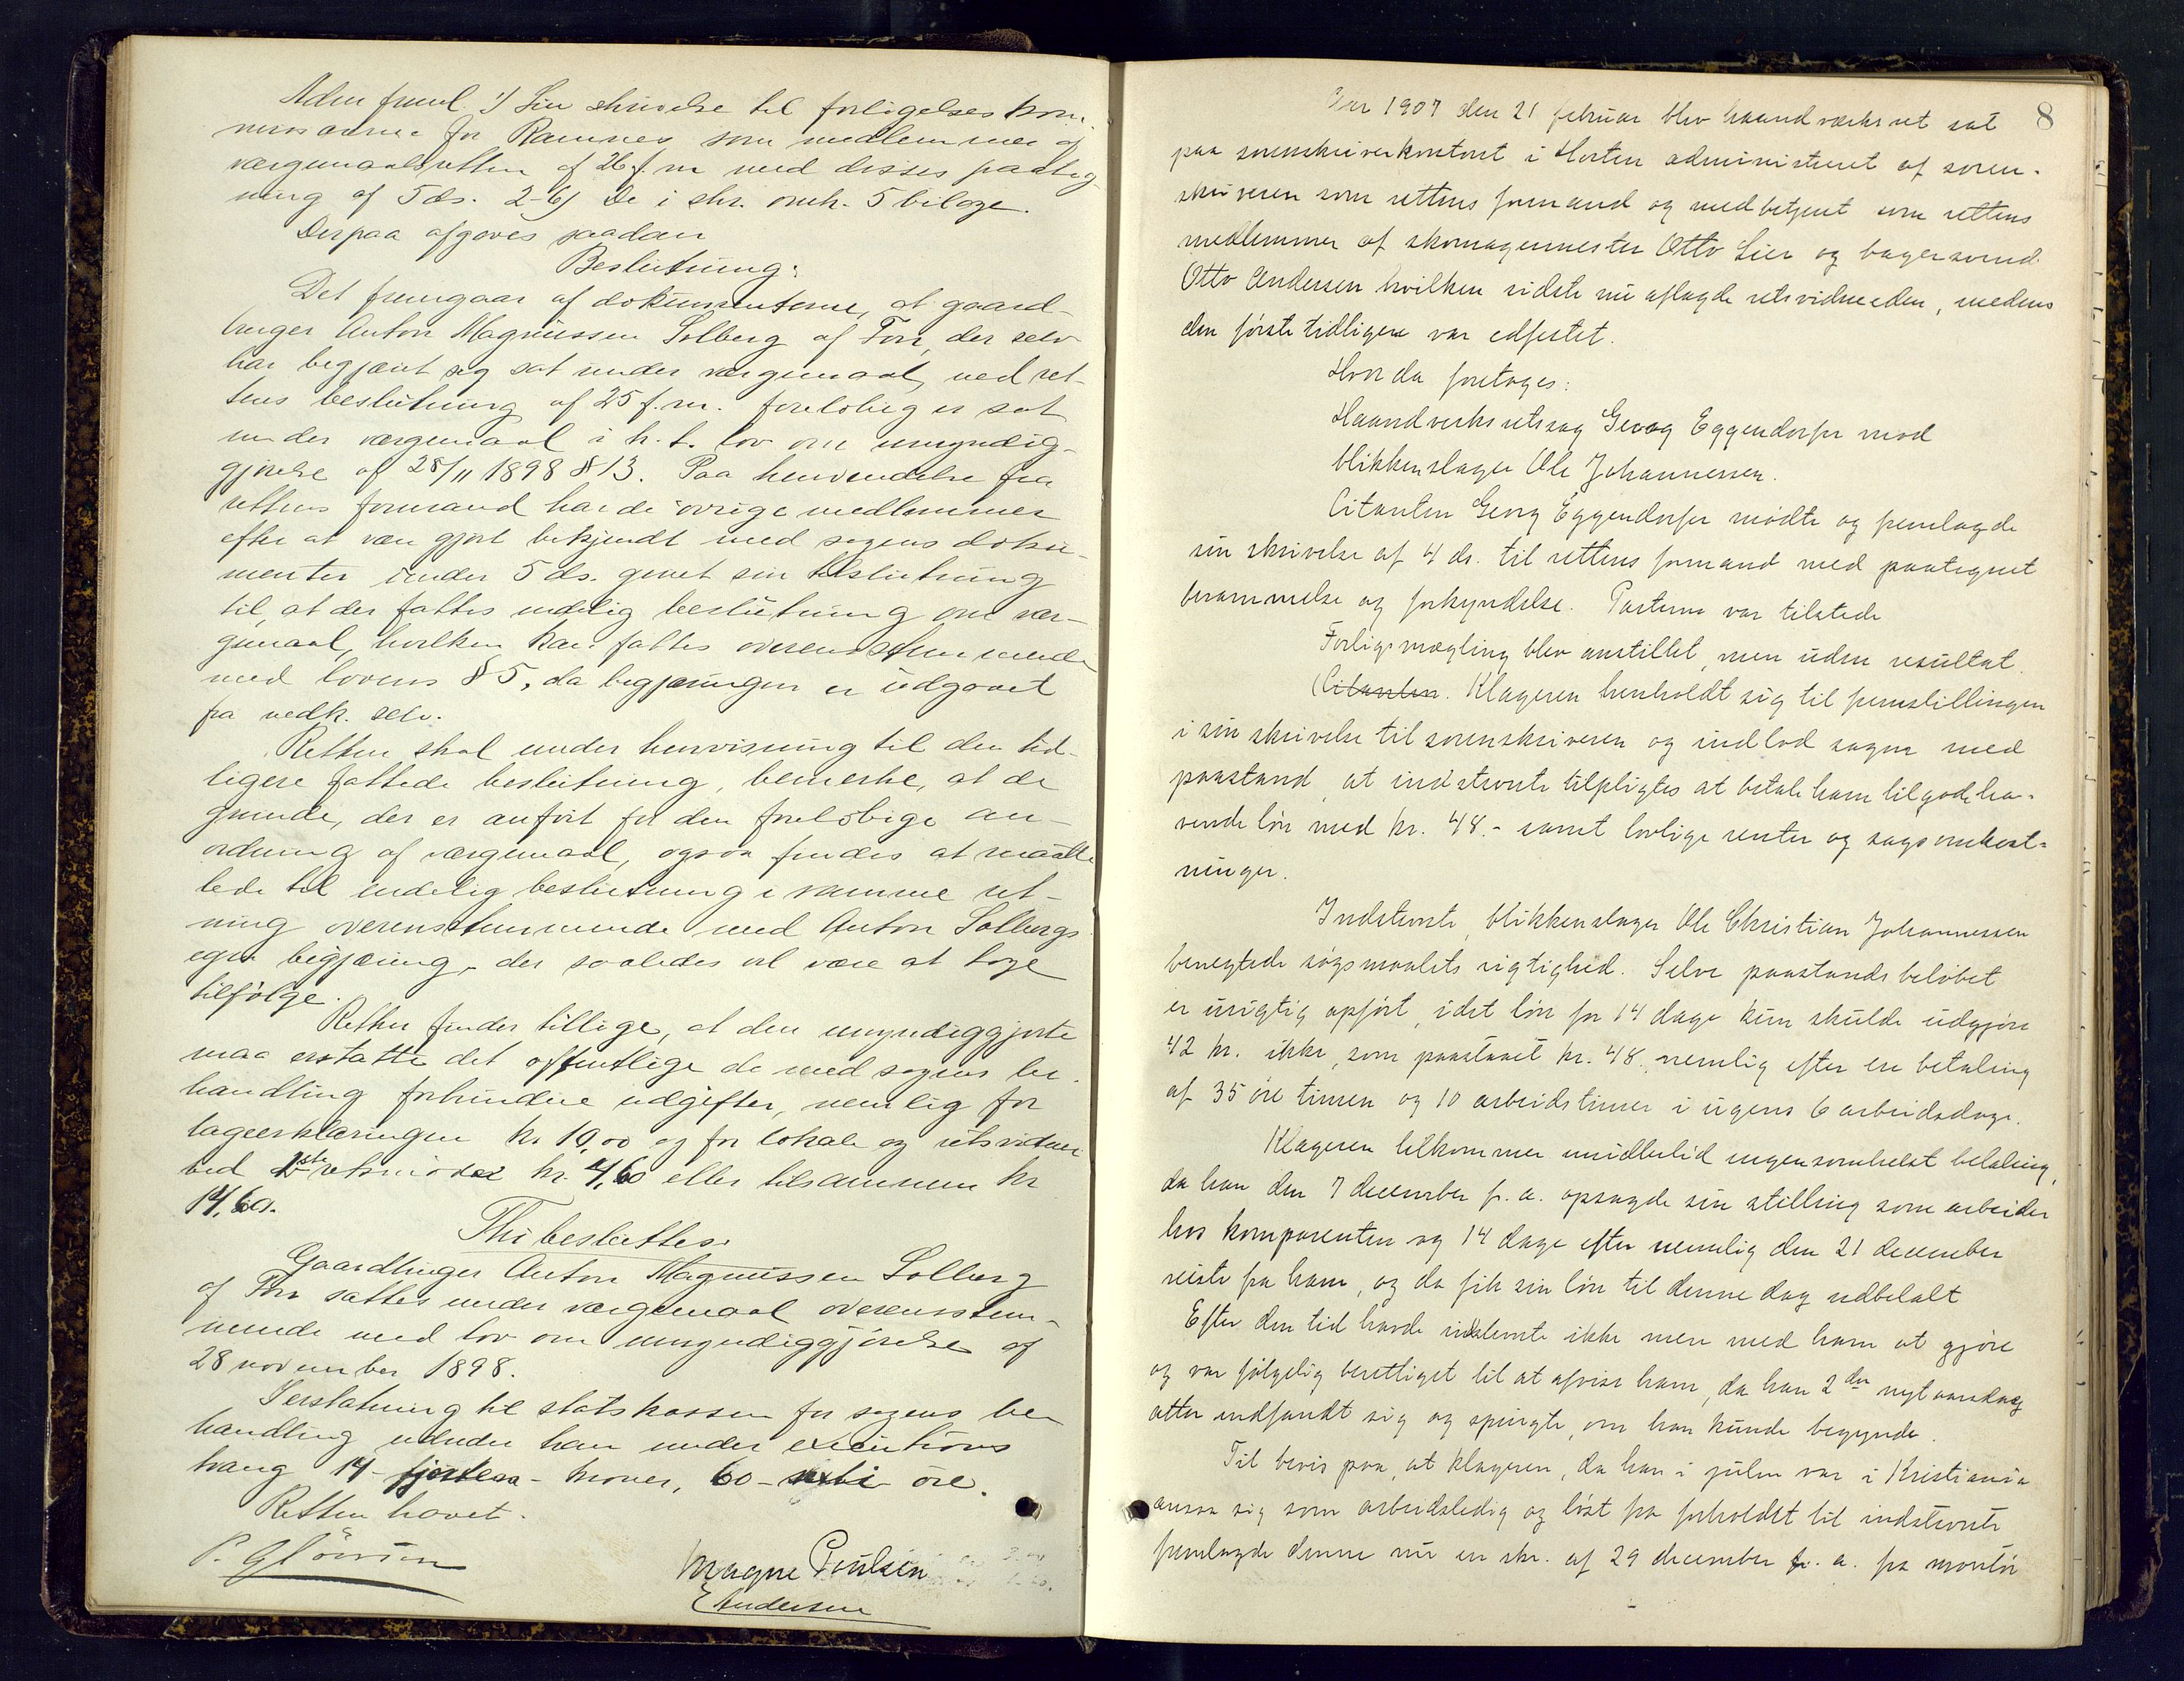 Adm freml. 1) Sin skrivelse til forligelseskom-
misærerne for Ramnes som medlemmer af
værgemaalsretten af 26 f. m med disses paateg-
ning af 5 ds. 2-6) De i skr. omh. 5 bilage.
Derpaa afgaves saadan
Beslutning:
Det fremgaar af dokumenterne, at gaard-
bruger Anton Magnussen Solberg af Fon, der selv
har begjæret sig sat under værgemaal, ved ret-
tens beslutning af 25 f. m. foreløbig er sat
under værgemaal i h. t. lov om umyndig-
gjørelse af 28/11 1898 § 13. Paa henvendelse fra
rettens formand har de øvrige medlemmer
efter at være gjort bekjendt med sagens doku-
menter under 5 ds. givet sin tilslutning
til, at der fattes endelig beslutning om vær-
gemaal, hvilken kan fattes overensstemmende
med lovens § 5, da begjæringen er udgaaet
fra vedk. selv.
Retten skal under henvisning til den tid-
ligere fattede beslutning, bemerke, at de
grunde, der er anført for den foreløbige an-
ordning af værgemaal, ogsaa findes at maatte
lede til endelig beslutning i samme ret-
ning overensstemmende med Anton Solbergs
egen begjæring, der saaledes vil være at tage
tilfølge.
Retten finder tillige, at den umyndiggjorte
maa erstatte det offentlige de med sagens be-
handling forbundne udgifter, nemlig for
lægeerklæringen kr. 10,00 og for lokale og retsvidner
ved 1ste retsmøde kr. 4,60 eller tilsammen kr
14,60.
Thi besluttes:
Gaardbruger Anton Magnussen Solberg
af Fon sættes under værgemaal overensstem-
mende med lov om umyndiggjørelse af
28 november 1898.
I erstatning til statskassen for sagens be-
handling udreder han under executions
tvang 14 - fjorten - kroner, 60 - seksti øre.
Retten hævet.
Magne Poulsen
E Andersen
8
Aar 1907 den 21 februar blev haandværksret sat
paa sorenskriverkontoret i Horten administreret af soren-
skriveren som rettens formand og medbetjent som rettens
medlemmer af skomagermester Otto Lier og bagersvend
Otto Andersen hvilken sidste nu aflagde retsvidneeden, medens
den første tidligere var edfestet.
Hvor da foretages:
Haandverksretssag Georg Eggendorfer mod
blikkenslager Ole Johannessen.
Citanten Georg Eggendorfer mødte og fremlagde
sin skrivelse af 4 ds. til rettens formand med paategnet
berammelse og forkyndelse. Parterne var tilstede
Forligsmægling blev anstillet, men uden resultat.
(Citanten. Klageren henholdt sig til fremstillingen
i sin skrivelse til sorenskriveren og indlod sagen med
paastand, at indstevnte tilpligtes at betale ham tilgodeha-
vende løn med kr. 48.- samt lovlige renter og sagsomkost-
ninger.
Indstevnte, blikkenslager Ole Christian Johannessen
benegtede søgsmaalets rigtighed. Selve paastandsbeløbet
er urigtig opført, idet løn for 14 dage kun skulde udgjøre
42 kr. ikke, som paastaaet kr. 48, nemlig efter en betaling
af 35 øre timen og 10 arbeidstimer i ugens 6 arbeidsdage.
Klageren tilkommer imidlertid ingensomhelst betaling,
da han den 7 december f. a. opsagde sin stilling som arbeider
hos komparenten og 14 dage efter nemlig den 21 december
reiste fra ham, og da fik sin løn til denne dag udbetalt
Efter den tid havde indstevnte ikke mere med ham at gjøre
og var følgelig berettiget til at afvise ham, da han 2den nytaarsdag
atter indfandt sig og spurgte, om han kunde begynde.
Til bevis paa, at klageren, da han i julen var i Kristiania
ansaa sig som arbeidsledig og løst fra forholdet til indstevnte
fremlagde denne nu en skr. af 29 december f. a. fra montør